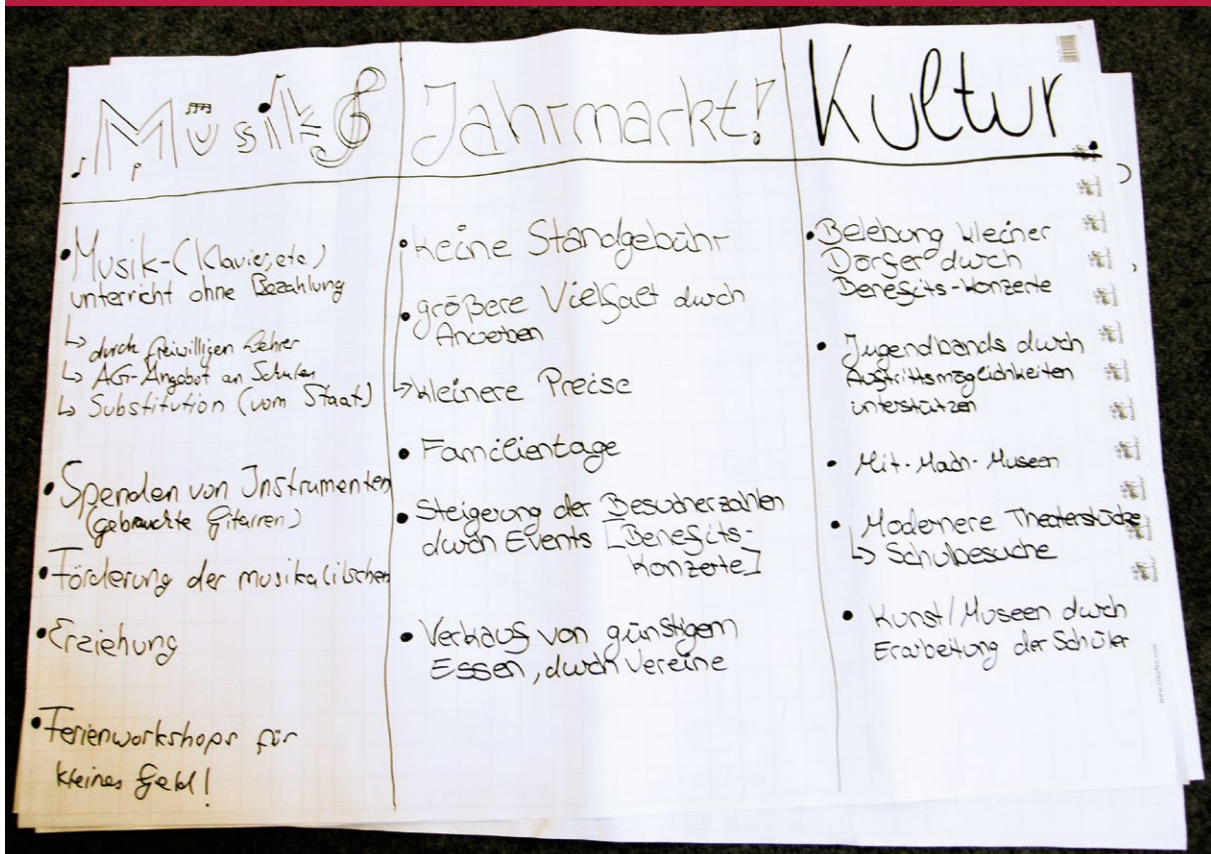 Musik
• Musik-(Klavier, etc)
unterricht ohne Bezahlung
↳ durch freiwilligen Lehrer
↳ AG-Angebot an Schulen
↳ Substitution (vom Staat)
• Spenden von Instrumenten
(gebrauchte Gitarren)
• Förderung der musikalischen
• Erziehung
• Ferienworkshops für
kleines Geld!
Jahrmarkt!
• keine Standgebühr
• größere Vielfalt durch
Anwerben
↳ kleinere Preise
• Familientage
• Steigerung der Besucherzahlen
durch Events [Benefits-
Konzerte]
• Verkauf von günstigem
Essen, durch Vereine
Kultur
• Belebung kleiner
Dörfer durch
Benefits-Konzerte
• Jugendbands durch
Auftrittsmöglichkeiten
unterstützen
• Mit-Mach-Museen
• Modernere Theaterstücke
↳ Schulbesuche
• Kunst/Museen durch
Erarbeitung der Schüler